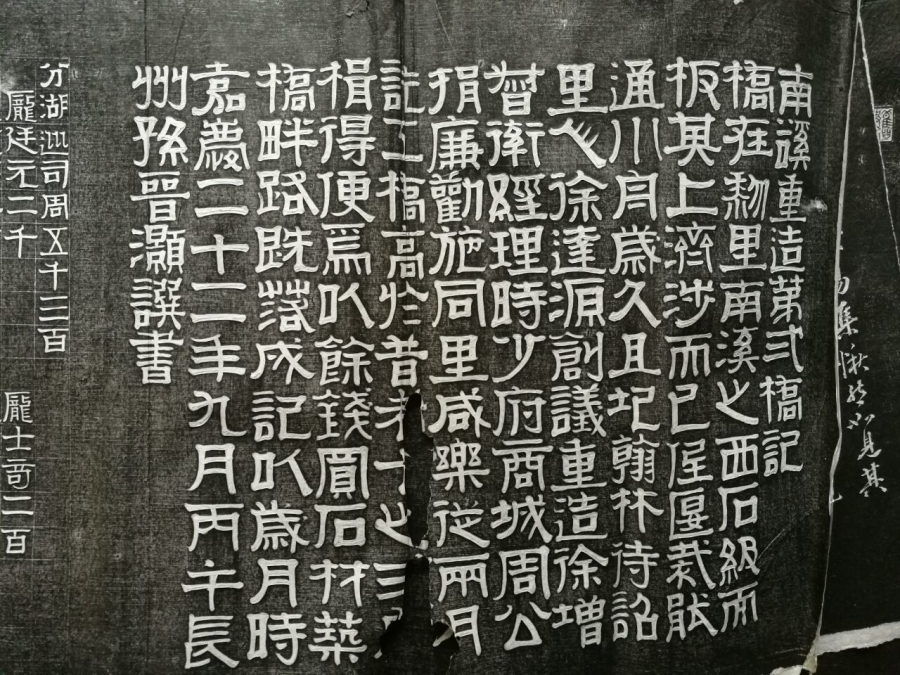 見其
南谿重造第弍橋記
橋在黎里南溪之西石級而
板其上濟涉而已
通川月歲久且圮翰林待詔
里人徐達源創議重造徐增
經理時少府商城周公
捐廉勸施同里咸樂從兩月
訖工橋高於昔者十之三
楫得便焉以餘錢買石材築
橋畔路既落成記以歲月時
嘉慶二十二年九月丙午長
州孫晉灝譔書
分湖巡司周五千三百
龐廷元二千 龐士奇二百